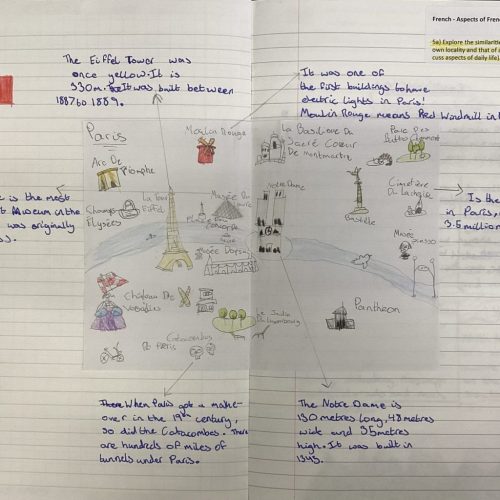 French - Aspects of Fren
5a) Explore the similariti
own locality and that of a
cuss aspects of daily life).
The Eiffel Tower was
once yellow. It is
330m. It was built between
1887 to 1889.
It was one of
the first buildings to have
electric lights in Paris!
Moulin Rouge means Red Windmill in
Paris
Arc De
Triomphe
Champs
Elysées
La Tour
Eiffel
Moulin Rouge
Musée Du
La Basilique Du
Sacré Coeur
De Montmartre
Parc Des
Notre Dame
Bastille
Cimetière
Musée
Picasso
Musée Dorsay
Château De
Versailles
Catacombes
De Paris
Le Jardin
Luxembourg
Pantheon
is the most
Museum in the
was originally
Is the
in Paris,
3.5 million
When Paris got a make-
over in the 19th century,
so did the Catacombes. There
are hundreds of miles of
tunnels under Paris.
The Notre Dame is
130 metres long, 48 metres
wide and 35 metres
high. It was built in
1345.